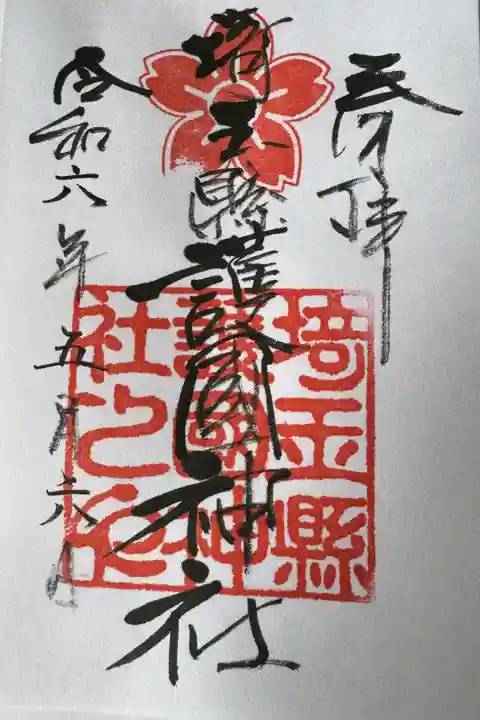 奉拝
埼玉縣護國神社
令和六年五月六日
埼玉縣
護國神
社之印